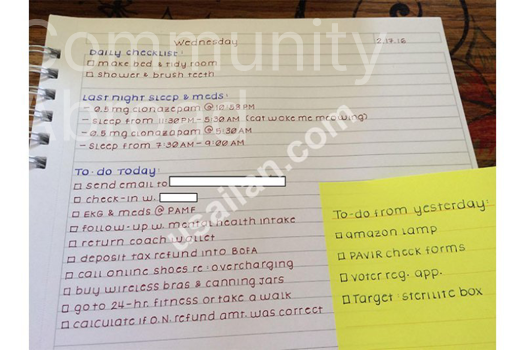 Wednesday 2.17.16
Daily Checklist:
make bed & tidy room
shower & brush teeth
Last night sleep & meds:
- 0.5 mg clonazepam @ PM
- sleep from 11:30 PM - 5:30 AM (cat woke me meowing)
- 0.5 mg clonazepam @ 5:30 AM
- sleep from 7:30 AM - 9:00 AM
To-do Today:
send email to
check-in w.
EKG & meds @ PAMF
follow-up w. mental health intake
return coach wallet
deposit tax refund into BOFA
call online shoes re: overcharging
buy wireless bras & canning jars
go to 24-hr. fitness or take a walk
calculate if O.N. refund amt. was correct
To-do from yesterday:
amazon lamp
PAVIR check forms
voter reg. app.
Target: sterilite box
Community
usailan.com